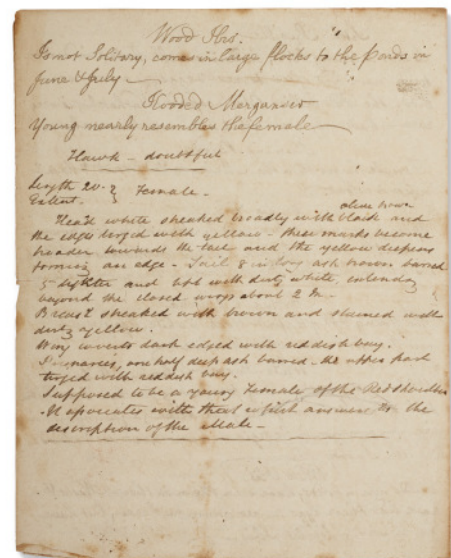 Wood Ibis.
Is not Solitary, comes in large flocks to the ponds in
June & July —
Hooded Merganser
Young nearly resembles the female
Hawk — doubtful
Length 20 - } Female -
Extent -
olive brown
Head white streaked broadly with black and
the edges tinged with yellow - these marks become
broader towards the tail and the yellow deepens
forming an edge - Tail 8 in long ash brown barred
5 lighter and tipt with dirty white, extending
beyond the closed wings about 2 In.
Breast streaked with brown and stained with
dirty yellow.
Wing coverts dark edged with reddish bay.
Primaries, one half deep ash barred - the upper part
tinged with reddish bay.
Supposed to be a young Female of the Red Shoulder
It associates with that which answers to the
description of the Male -